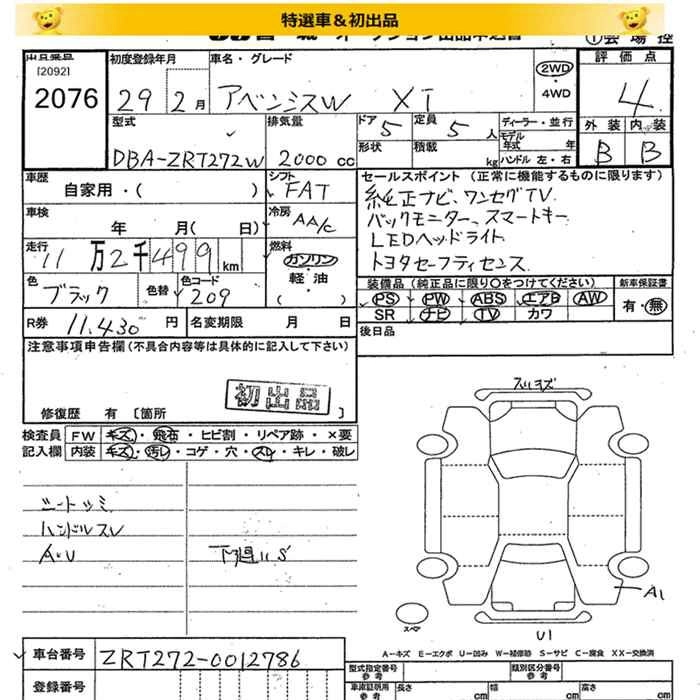 特選車&初出品
オークション出品申込書
①会場控
出品番号
[2092]
2076
初度登録年月
29 2月
車名・グレード
アベンシスW XI
2WD
4WD
評価点
4
外装 内装
B B
型式
DBA-ZRT272W
排気量
2000 cc
ドア 5
定員 5 人
形状
積載 kg
ディーラー・並行
モデル年式 年
ハンドル 左・右
車歴
自家用・( )
シフト
FAT
冷房
AA/C
車検
年 月( 日)
走行
11万2千499km
燃料
ガソリン
軽油
( )
色
ブラック
色替
色コード
209
R券 11.430 円
名変期限 月 日
セールスポイント(正常に機能するものに限ります)
純正ナビ、ワンセグTV
バックモニター、スマートキー
LEDヘッドライト
トヨタセーフティセンス
装備品(純正品に限り○をつけてください)
PS PW ABS エアB AW
SR ナビ TV カワ
新車保証書
有・無
後日品
注意事項申告欄(不具合内容等は具体的に記入して下さい)
初出品
修復歴 有〔箇所 〕
検査員記入欄
FW キズ・飛石・ヒビ割・リペア跡・×要
内装 キズ・汚レ・コゲ・穴・スレ・キレ・破レ
シートシミ
ハンドルスレ
A・U
下廻リS
スリキズ
A1
スペア
U1
A-キズ E-エクボ U-凹み W-補修跡 S-サビ C-腐食 XX-交換済
車台番号 ZRT272-0012786
登録番号
型式指定番号 参考
類別区分番号 参考
車庫証明用 参考
長さ cm
幅 cm
高さ cm